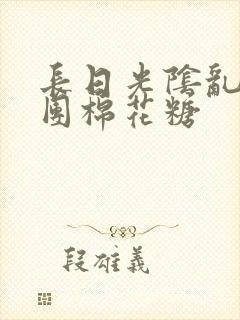 長日光陰亂
團棉花糖
段雄義